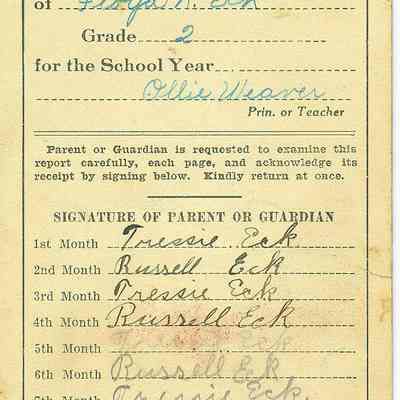 of Floyd R. Eck
Grade 2
for the School Year
Ollie Weaver
Prin. or Teacher
Parent or Guardian is requested to examine this
report carefully, each page, and acknowledge its
receipt by signing below. Kindly return at once.
SIGNATURE OF PARENT OR GUARDIAN
1st Month Tressie Eck
2nd Month Russell Eck
3rd Month Tressie Eck
4th Month Russell Eck
5th Month Tressie Eck
6th Month Russell Eck
7th Tressie Eck